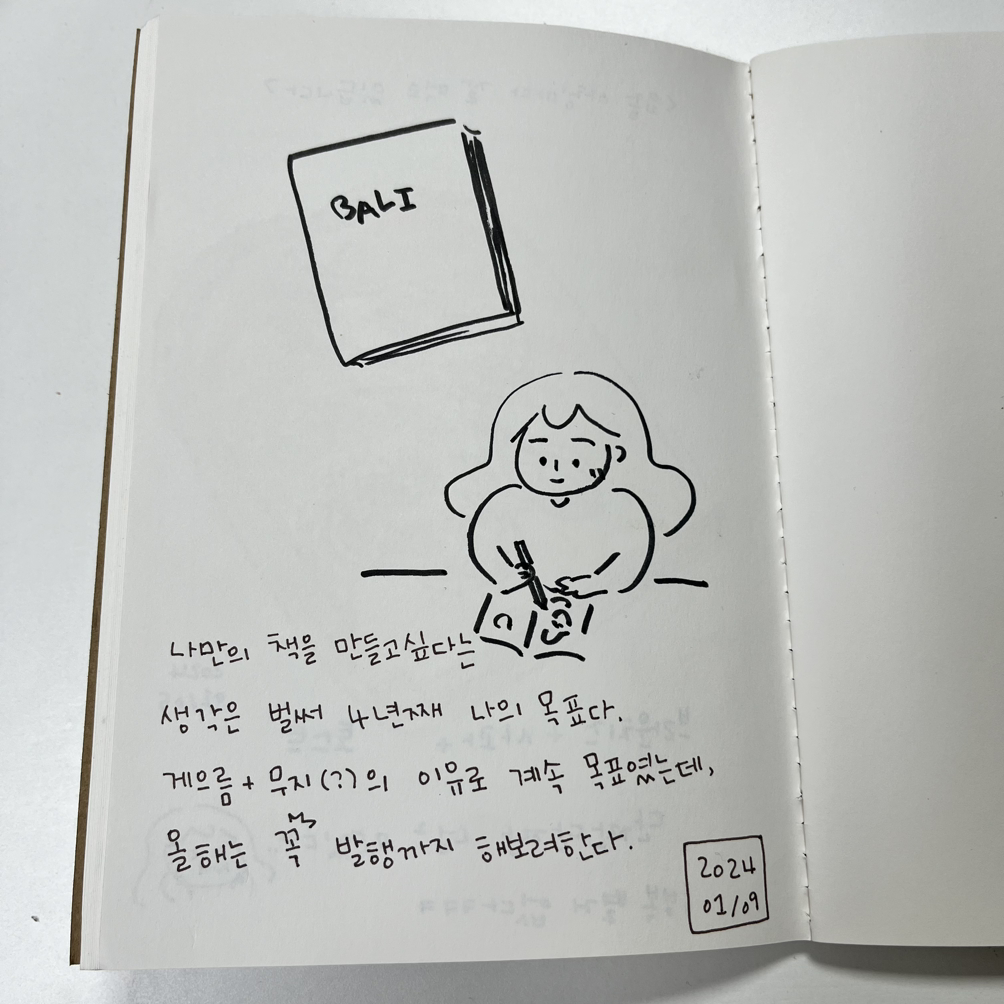 BALI
나만의 책을 만들고싶다는
생각은 벌써 4년째 나의 목표다.
게으름 + 무지(?)의 이유로 계속 목표였는데,
올해는 꼭 발행까지 해보려한다.
2024
01/09